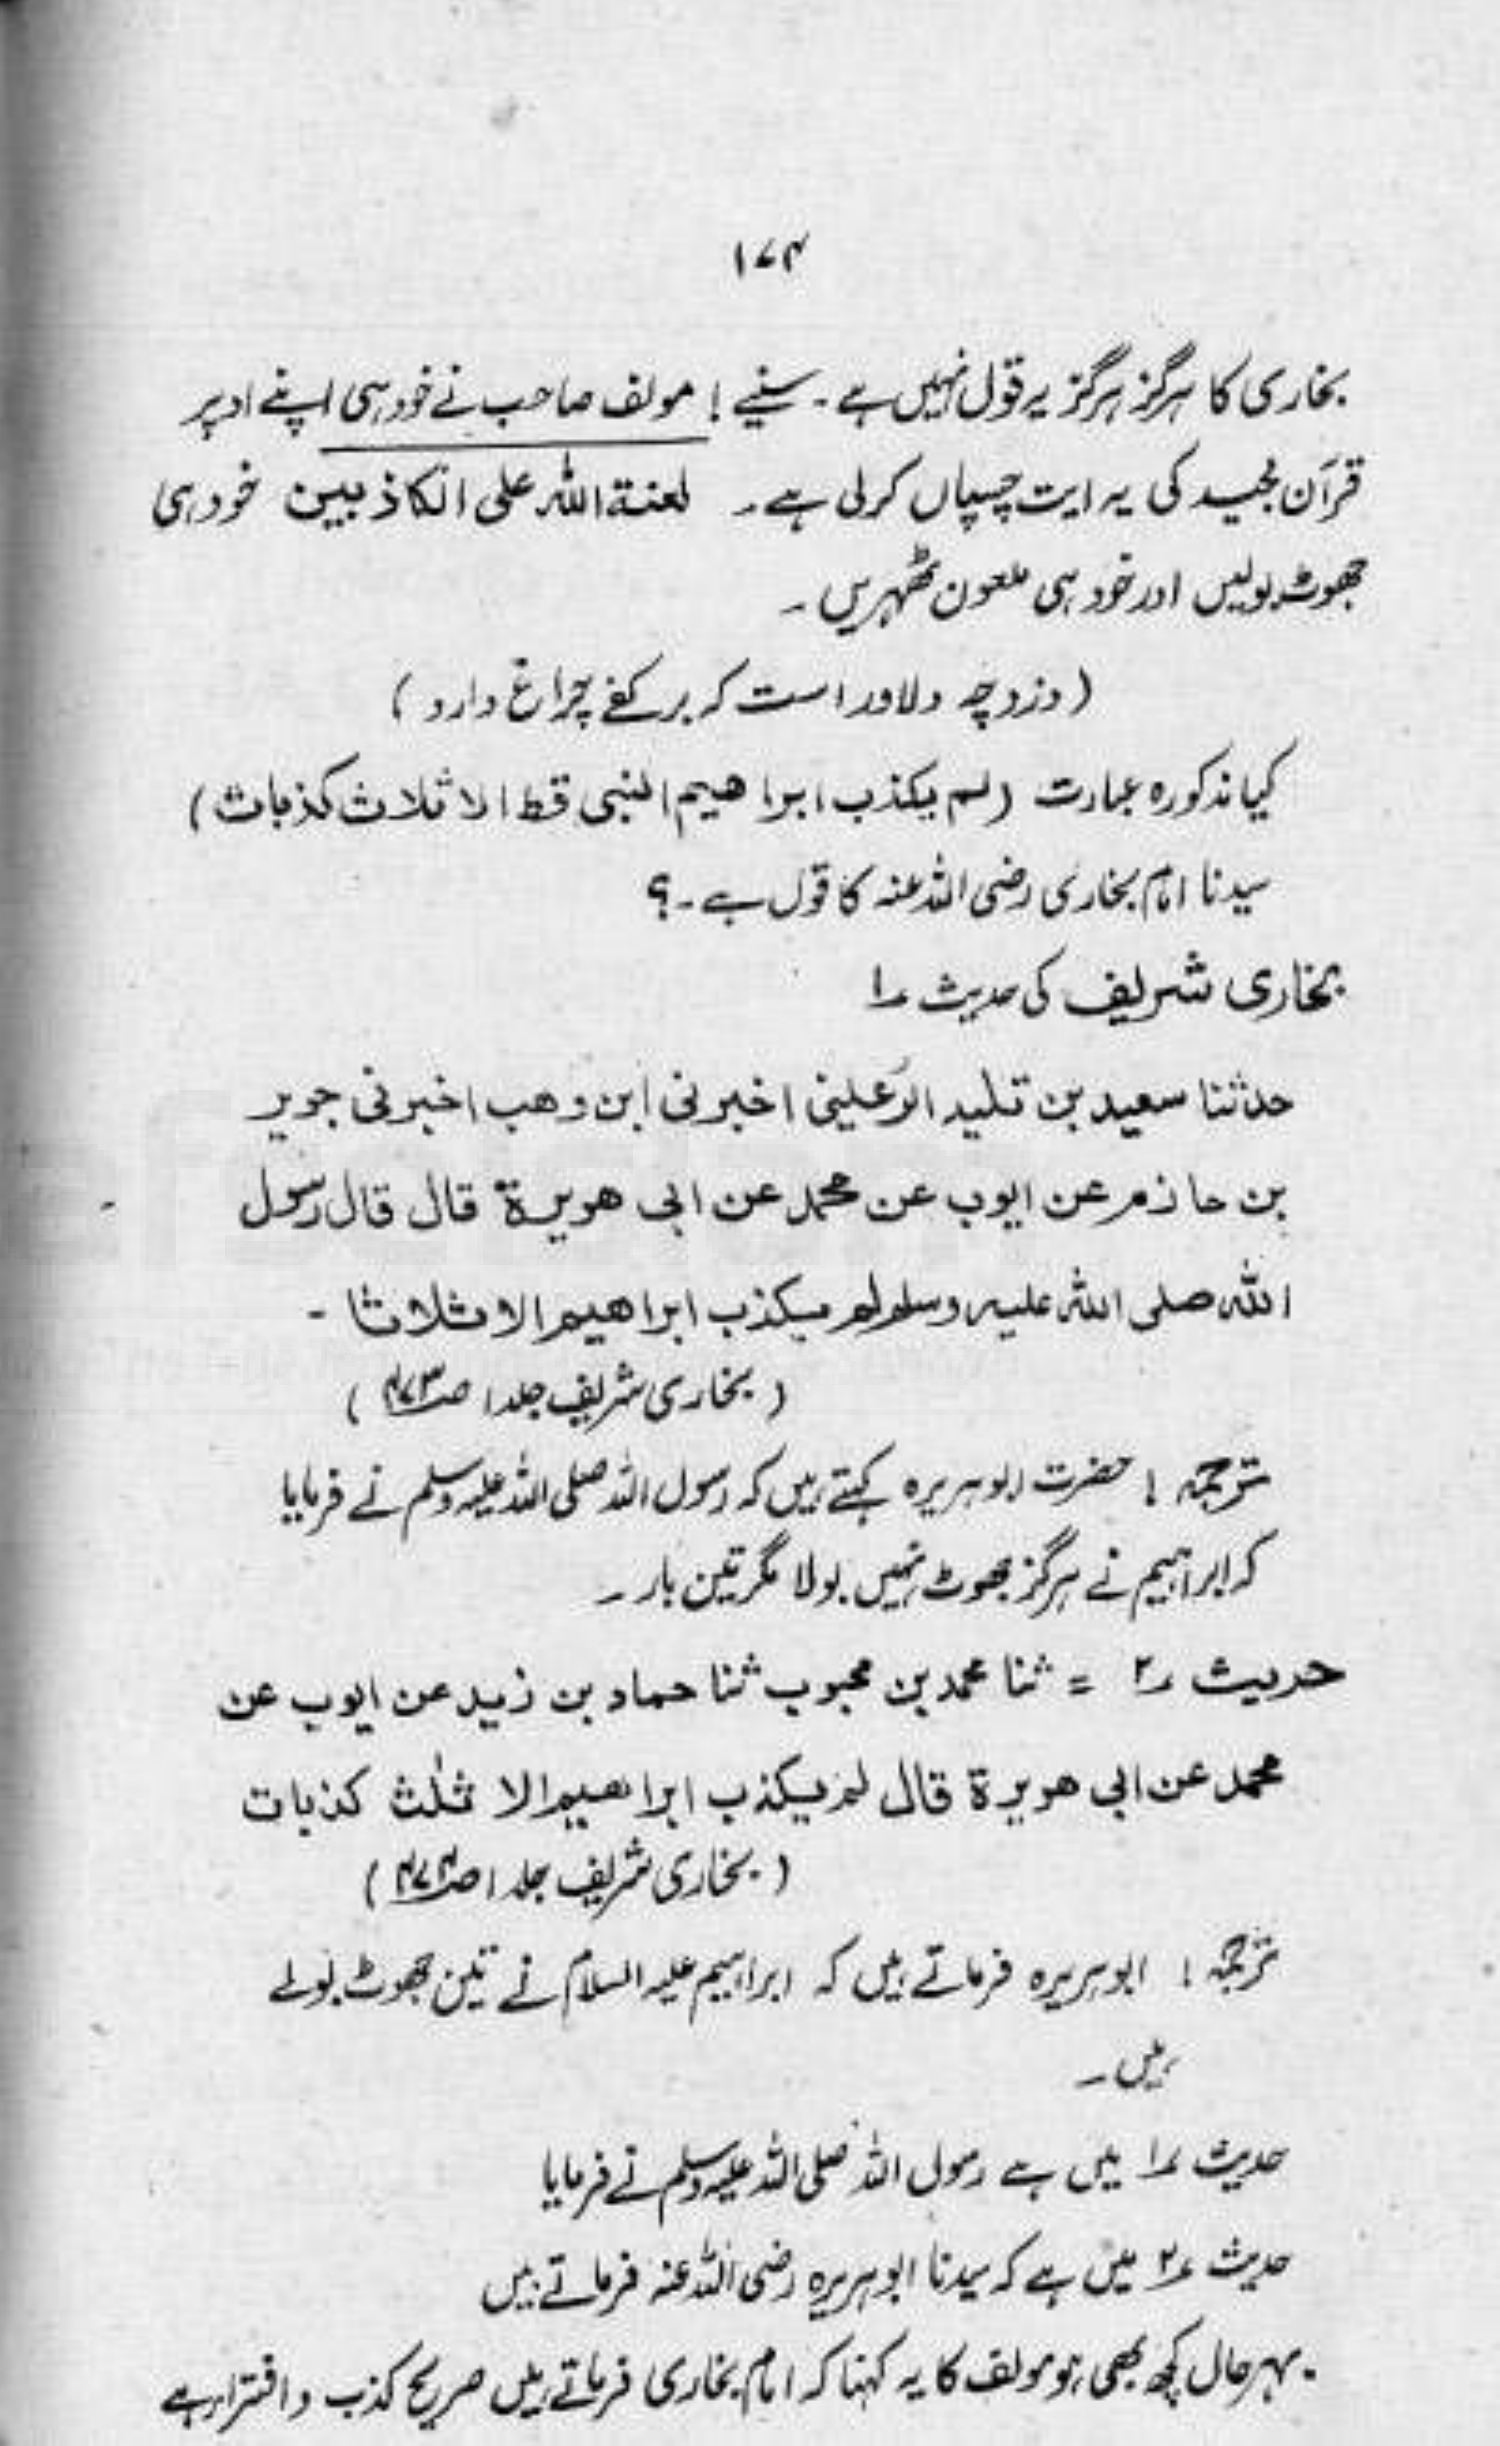 ۱۷۴
بخاری کا ہرگز ہرگز یہ قول نہیں ہے ۔ سنیے ! مولف صاحب نے خود ہی اپنے اوپر
قرآن مجید کی یہ ایت چسپاں کرلی ہے ۔ لعنة اللہ علی الکاذبین خود ہی
جھوٹ بولیں اور خود ہی ملعون ٹھہریں ۔
( دزدچہ دلاور است کہ بر کفے چراغ دارد )
کیا مذکورہ عبارت ( لم یکذب ابراھیم النبی قط الا ثلاث کذبات )
سیدنا امام بخاری رضی اللہ عنہ کا قول ہے ۔ ؟
بخاری شریف کی حدیث ۱
حدثنا سعید بن تلید الرعینی اخبرنی ابن وھب اخبرنی جریر
بن حازم عن ایوب عن محمد عن ابی ھریرة قال قال رسول
اللہ صلی اللہ علیہ وسلم لم یکذب ابراھیم الا ثلاثا ۔
( بخاری شریف جلد ۱ صـ ۴۷۳ )
ترجمہ ! حضرت ابوہریرہ کہتے ہیں کہ رسول اللہ صلی اللہ علیہ وسلم نے فرمایا
کہ ابراہیم نے ہرگز جھوٹ نہیں بولا مگر تین بار ۔
حدیث ۲ = ثنا محمد بن محبوب ثنا حماد بن زید عن ایوب عن
محمد عن ابی ھریرة قال لم یکذب ابراھیم الا ثلٰث کذبات
( بخاری شریف جلد ۱ صـ ۴۷۴ )
ترجمہ ! ابوہریرہ فرماتے ہیں کہ ابراہیم علیہ السلام نے تین جھوٹ بولے
ہیں ۔
حدیث ۱ میں ہے رسول اللہ صلی اللہ علیہ وسلم نے فرمایا
حدیث ۲ میں ہے کہ سیدنا ابوہریرہ رضی اللہ عنہ فرماتے ہیں
بہرحال کچھ بھی ہو مولف کا یہ کہنا کہ امام بخاری فرماتے ہیں صریح کذب و افترا ہے